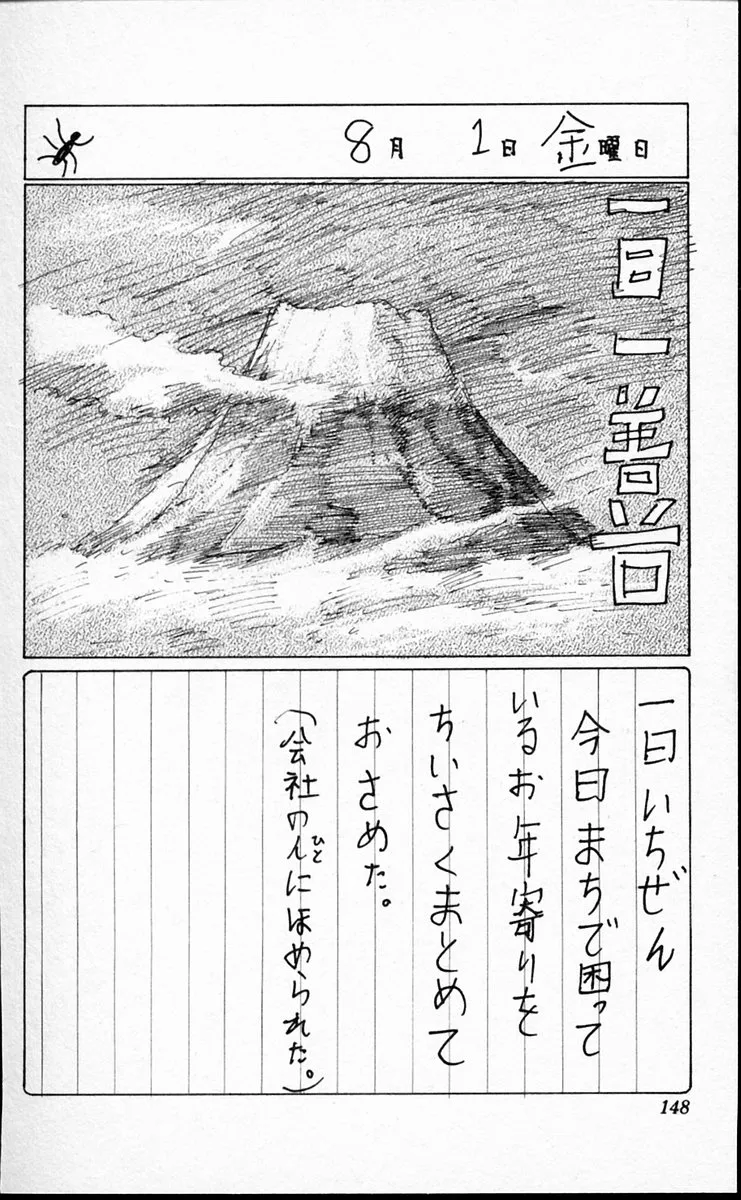 8月 1日 金曜日
一日一善
一日いちぜん
今日まちで困って
いるお年寄りを
ちいさくまとめて
おさめた。
(会社の人にほめられた。)
ひと
148